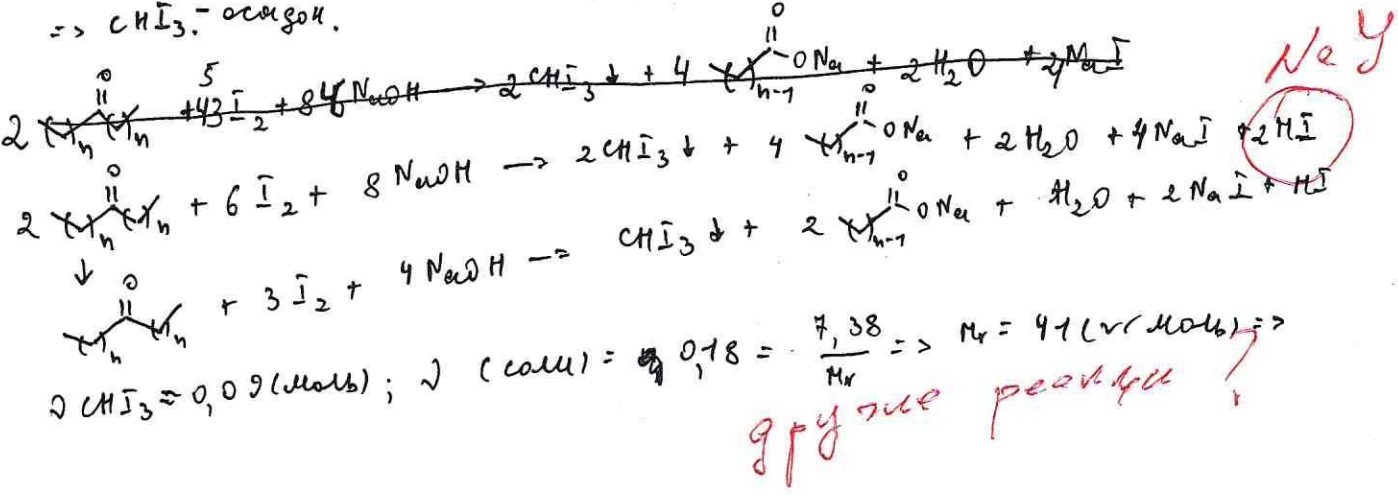 => CHI₃ - осадок.
2 O n n + 3 I₂ + 8 NaOH → 2 CHI₃ ↓ + 4 O ONa n-1 + 2 H₂O + 2 NaI
NaI
2 O n n + 6 I₂ + 8 NaOH → 2 CHI₃ ↓ + 4 O ONa n-1 + 2 H₂O + 4 NaI + 2 HI
↓ O n n + 3 I₂ + 4 NaOH → CHI₃ ↓ + 2 O ONa n-1 + H₂O + 2 NaI + HI
ν CHI₃ = 0,09 (моль); ν (соли) = 0,18 = 7,38 / Mr => Mr = 41 (г/моль) =>
другие реакции ?